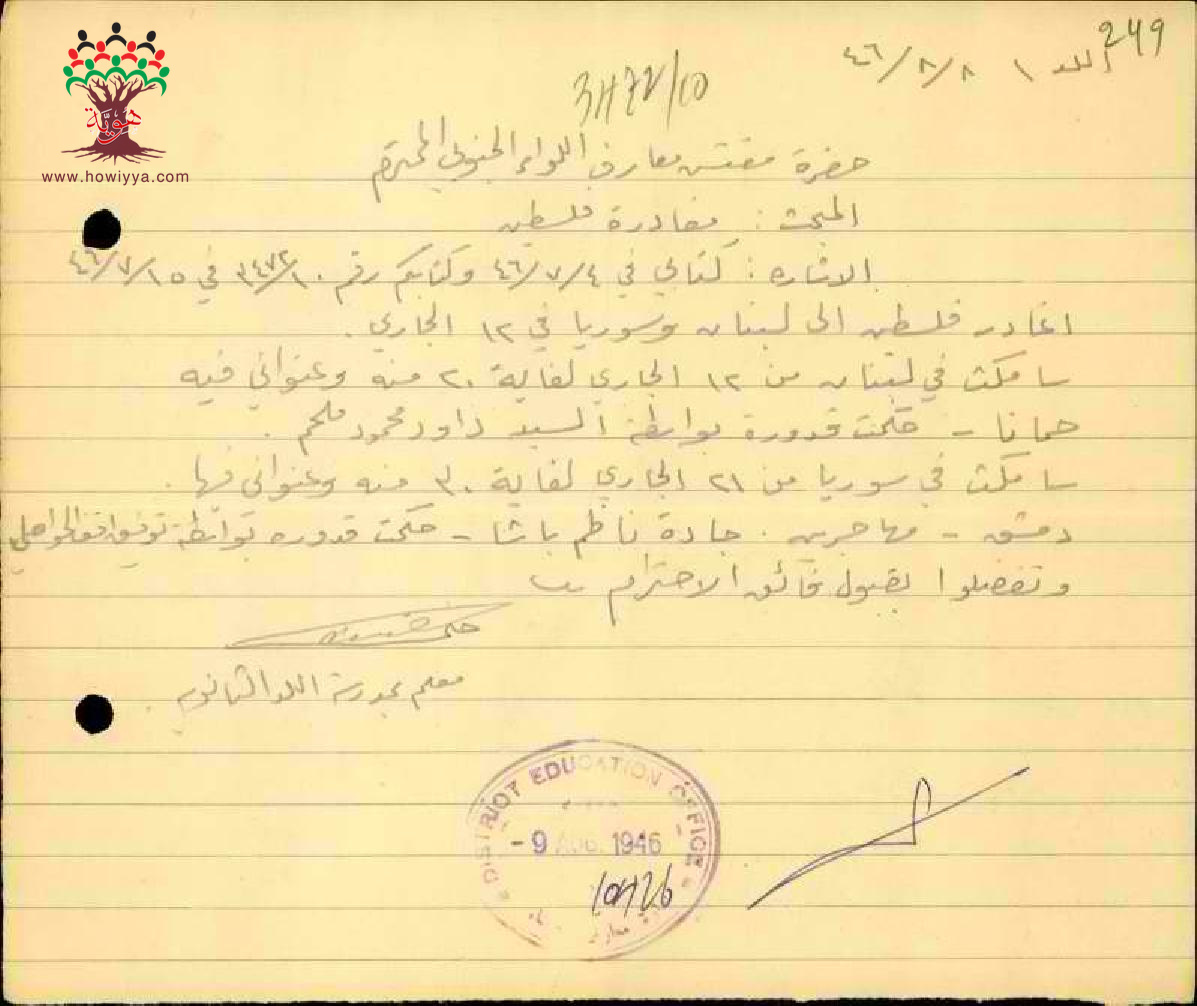 249
اللد ٨/٨/٤٦
3472/10
هوية
www.howiyya.com
حضرة مفتش معارف اللواء الجنوبي المحترم
المبحث : مغادرة فلسطين
الاشارة : كتابي في ٤/٧/٤٦ وكتابكم رقم ٣٤٧٢/١٠ في ١٥/٧/٤٦
اغادر فلسطين الى لبنان وسوريا في ١٢ الجاري .
سامكث في لبنان من ١٢ الجاري لغاية ٢٠ منه وعنواني فيه
حمانا - حكمت قدورة بواسطة السيد داود محمود ملحم .
سامكث في سوريا من ٢١ الجاري لغاية ٣٠ منه وعنواني فيها .
دمشق - مهاجرين . جادة ناظم باشا - حكمت قدوره بواسطة توفيق
وتفضلوا بقبول فائق الاحترام
حكمت قدورة
معلم بمدرسة اللد الثانوية .
DISTRICT EDUCATION OFFICE
- 9 AUG. 1946
معارف